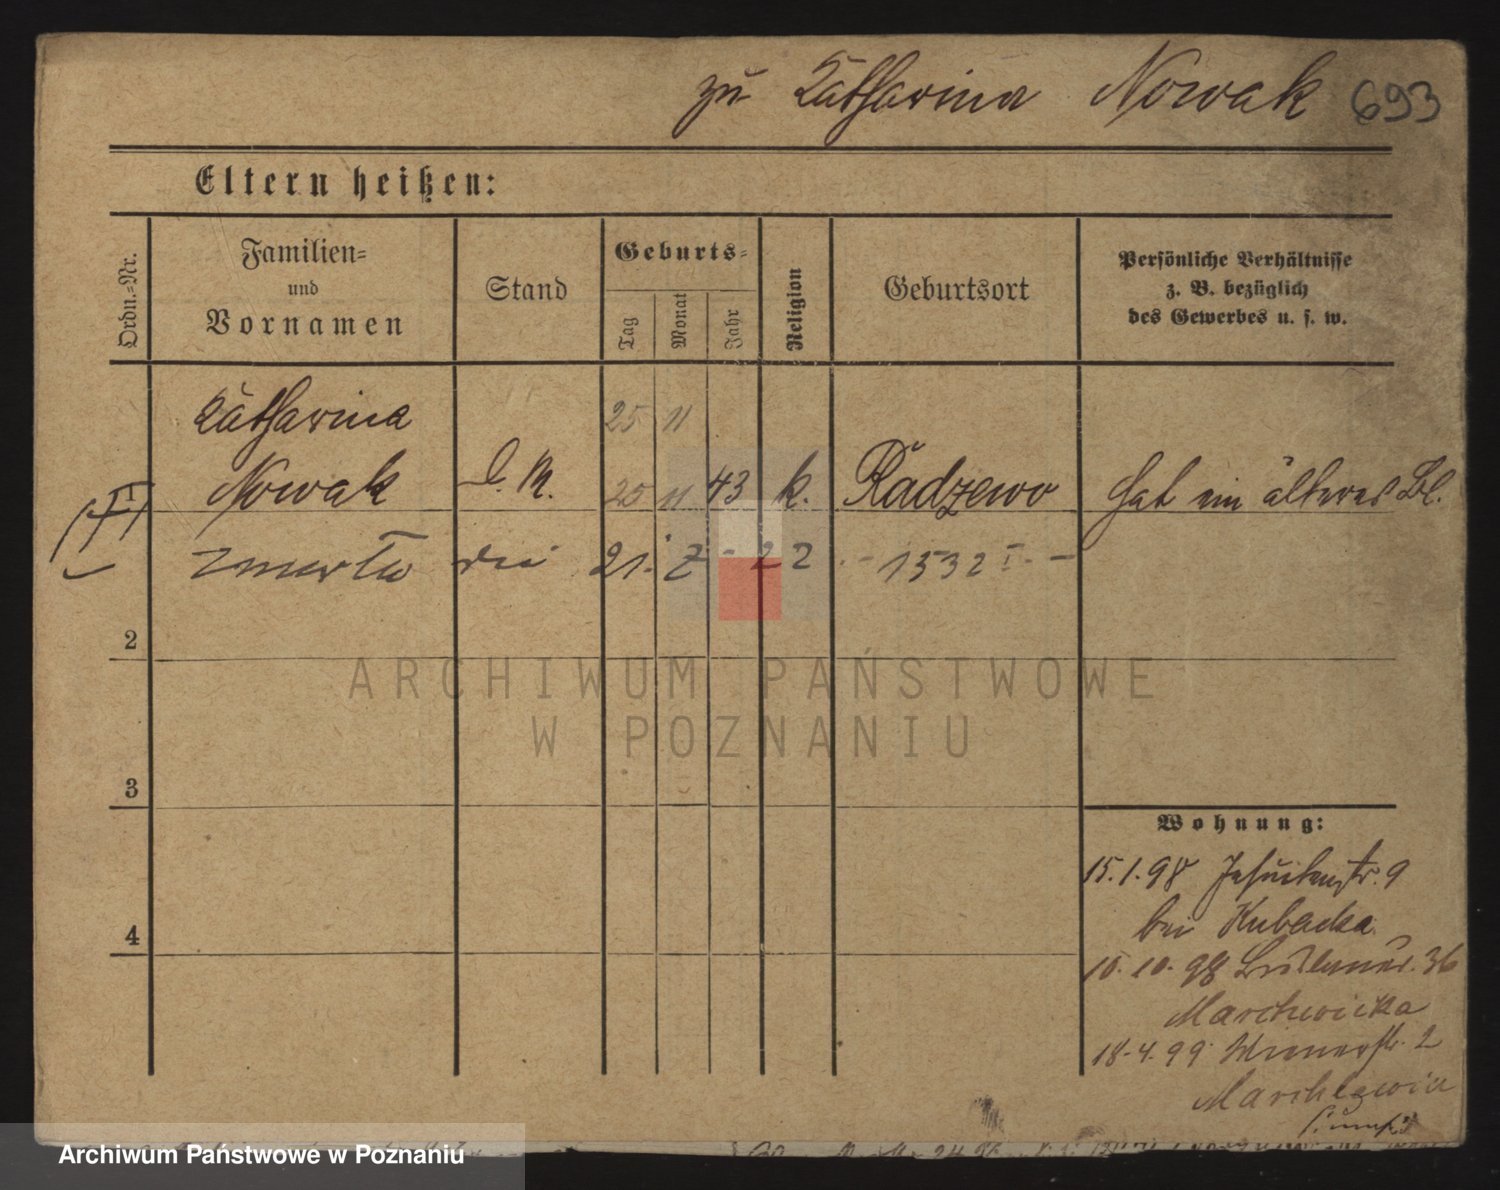 zu Katharina Nowak 693
Eltern heißen:
Ordn.-Nr.
Familien-
und
Vornamen
Stand
Geburts-
Tag
Monat
Jahr
Religion
Geburtsort
Persönliche Verhältnisse
z. B. bezüglich
des Gewerbes u. s. w.
Katharina 25 11
Nowak D. M. 25 11 43 k. Radzewo Hat ein älteres Bl.
zmarła dnia 21. 2 - 22 - 1532 I. -
2
3
4
Wohnung:
15.1.98 Jesuitenstr. 9
bei Kubacka
10.10.98 36
Marchwicka
18.4.99 Wienerstr. 2
ARCHIWUM PAŃSTWOWE
W POZNANIU
Archiwum Państwowe w Poznaniu